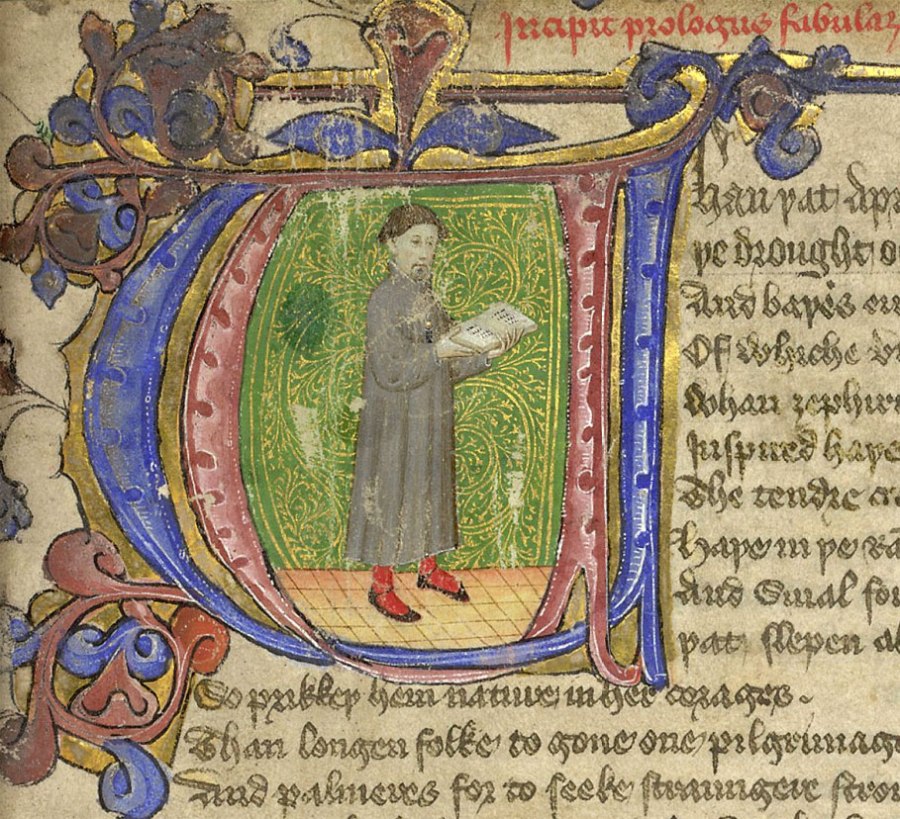 Incipit prologus fabular
Whan þat Apr
þe drought o
And baþis
Of whiche
Whan zephir
Inspired haþe
The tendre cr
Haþe in þe Ra
And Smal fo
þat slepen al
So prikkeþ hem nature in her corages .
Than longen folke to gone one pilgrimage
And palmeres for to seeke straungere stron